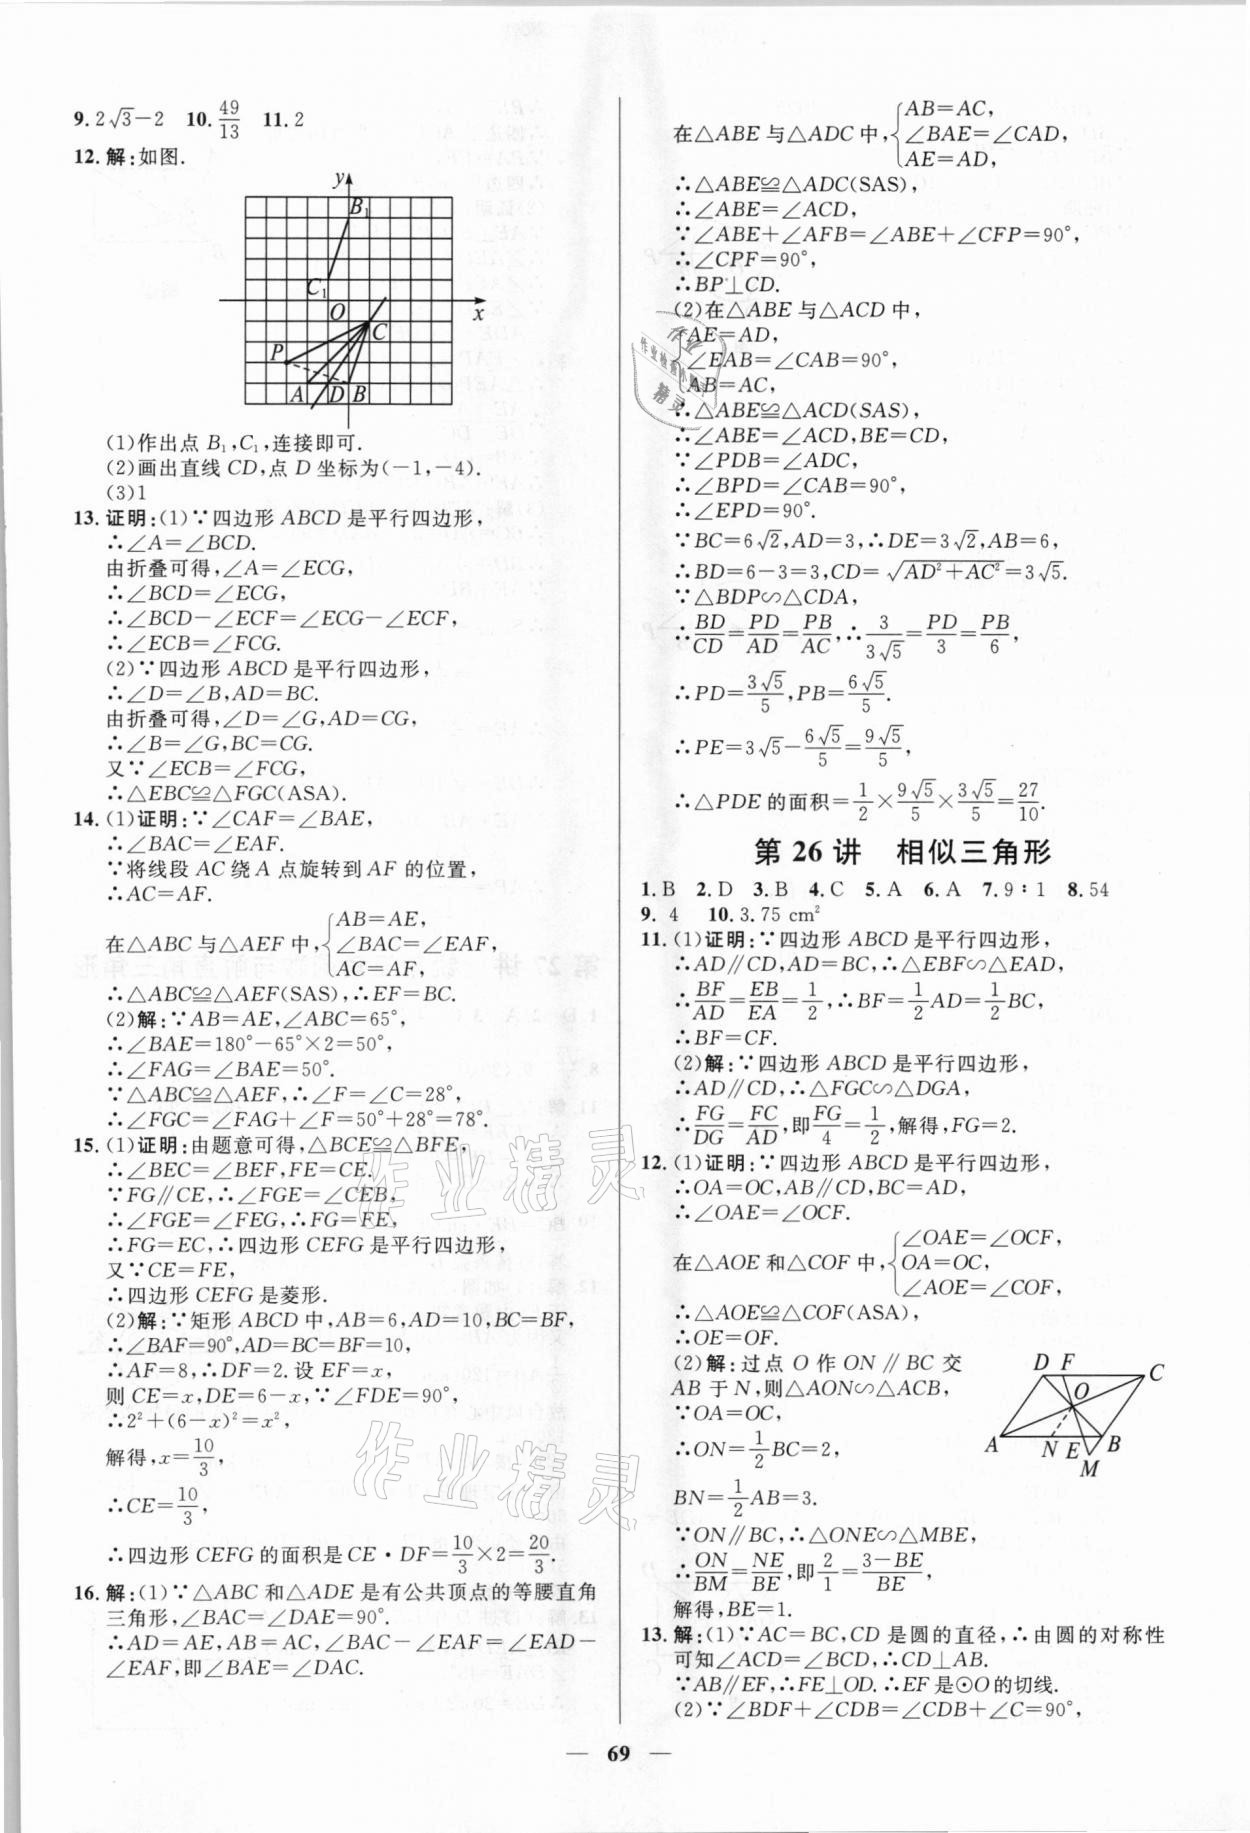 9. 2√3−2  10. 49/13  11. 2
12. 解:如图.
y
B₁
C₁
O
x
C
P
A D B
(1)作出点 B₁,C₁,连接即可.
(2)画出直线 CD,点 D 坐标为(−1,−4).
(3)1
13. 证明:(1)∵四边形 ABCD 是平行四边形,
∴∠A=∠BCD.
由折叠可得,∠A=∠ECG,
∴∠BCD=∠ECG,
∴∠BCD−∠ECF=∠ECG−∠ECF,
∴∠ECB=∠FCG.
(2)∵四边形 ABCD 是平行四边形,
∴∠D=∠B,AD=BC.
由折叠可得,∠D=∠G,AD=CG,
∴∠B=∠G,BC=CG.
又∵∠ECB=∠FCG,
∴△EBC≌△FGC(ASA).
14. (1)证明:∵∠CAF=∠BAE,
∴∠BAC=∠EAF.
∵将线段 AC 绕 A 点旋转到 AF 的位置,
∴AC=AF.
在△ABC 与△AEF 中,{AB=AE,
∠BAC=∠EAF,
AC=AF,
∴△ABC≌△AEF(SAS),∴EF=BC.
(2)解:∵AB=AE,∠ABC=65°,
∴∠BAE=180°−65°×2=50°,
∴∠FAG=∠BAE=50°.
∵△ABC≌△AEF,∴∠F=∠C=28°,
∴∠FGC=∠FAG+∠F=50°+28°=78°.
15. (1)证明:由题意可得,△BCE≌△BFE,
∴∠BEC=∠BEF,FE=CE.
∵FG∥CE,∴∠FGE=∠CEB,
∴∠FGE=∠FEG,∴FG=FE,
∴FG=EC,∴四边形 CEFG 是平行四边形,
又∵CE=FE,
∴四边形 CEFG 是菱形.
(2)解:∵矩形 ABCD 中,AB=6,AD=10,BC=BF,
∴∠BAF=90°,AD=BC=BF=10,
∴AF=8,∴DF=2.设 EF=x,
则 CE=x,DE=6−x,∵∠FDE=90°,
∴2²+(6−x)²=x²,
解得,x=10/3,
∴CE=10/3,
∴四边形 CEFG 的面积是 CE·DF=10/3×2=20/3.
16. 解:(1)∵△ABC 和△ADE 是有公共顶点的等腰直角
三角形,∠BAC=∠DAE=90°.
∴AD=AE,AB=AC,∠BAC−∠EAF=∠EAD−
∠EAF,即∠BAE=∠DAC.
在△ABE 与△ADC 中,{AB=AC,
∠BAE=∠CAD,
AE=AD,
∴△ABE≌△ADC(SAS),
∴∠ABE=∠ACD,
∵∠ABE+∠AFB=∠ABE+∠CFP=90°,
∴∠CPF=90°,
∴BP⊥CD.
(2)在△ABE 与△ACD 中,
{AE=AD,
∠EAB=∠CAB=90°,
AB=AC,
∴△ABE≌△ACD(SAS),
∴∠ABE=∠ACD,BE=CD,
∵∠PDB=∠ADC,
∴∠BPD=∠CAB=90°,
∴∠EPD=90°.
∵BC=6√2,AD=3,∴DE=3√2,AB=6,
∴BD=6−3=3,CD=√(AD²+AC²)=3√5.
∵△BDP∽△CDA,
∴BD/CD=PD/AD=PB/AC,∴3/(3√5)=PD/3=PB/6,
∴PD=3√5/5,PB=6√5/5.
∴PE=3√5−6√5/5=9√5/5,
∴△PDE 的面积=1/2×9√5/5×3√5/5=27/10.
第 26 讲 相似三角形
1. B  2. D  3. B  4. C  5. A  6. A  7. 9∶1  8. 54
9. 4  10. 3.75 cm²
11. (1)证明:∵四边形 ABCD 是平行四边形,
∴AD∥CD,AD=BC,∴△EBF∽△EAD,
∴BF/AD=EB/EA=1/2,∴BF=1/2AD=1/2BC,
∴BF=CF.
(2)解:∵四边形 ABCD 是平行四边形,
∴AD∥CD,∴△FGC∽△DGA,
∴FG/DG=FC/AD,即FG/4=1/2,解得,FG=2.
12. (1)证明:∵四边形 ABCD 是平行四边形,
∴OA=OC,AB∥CD,BC=AD,
∴∠OAE=∠OCF.
在△AOE 和△COF 中,{∠OAE=∠OCF,
OA=OC,
∠AOE=∠COF,
∴△AOE≌△COF(ASA),
∴OE=OF.
(2)解:过点 O 作 ON∥BC 交
AB 于 N,则△AON∽△ACB,
∵OA=OC,
∴ON=1/2BC=2,
BN=1/2AB=3.
D F C
O
A N E B
M
∵ON∥BC,∴△ONE∽△MBE,
∴ON/BM=NE/BE,即2/1=(3−BE)/BE,
解得,BE=1.
13. 解:(1)∵AC=BC,CD 是圆的直径,∴由圆的对称性
可知∠ACD=∠BCD,∴CD⊥AB.
∵AB∥EF,∴FE⊥OD.∴EF 是⊙O 的切线.
(2)∵∠BDF+∠CDB=∠CDB+∠C=90°,
— 69 —
作业精灵
作业精灵